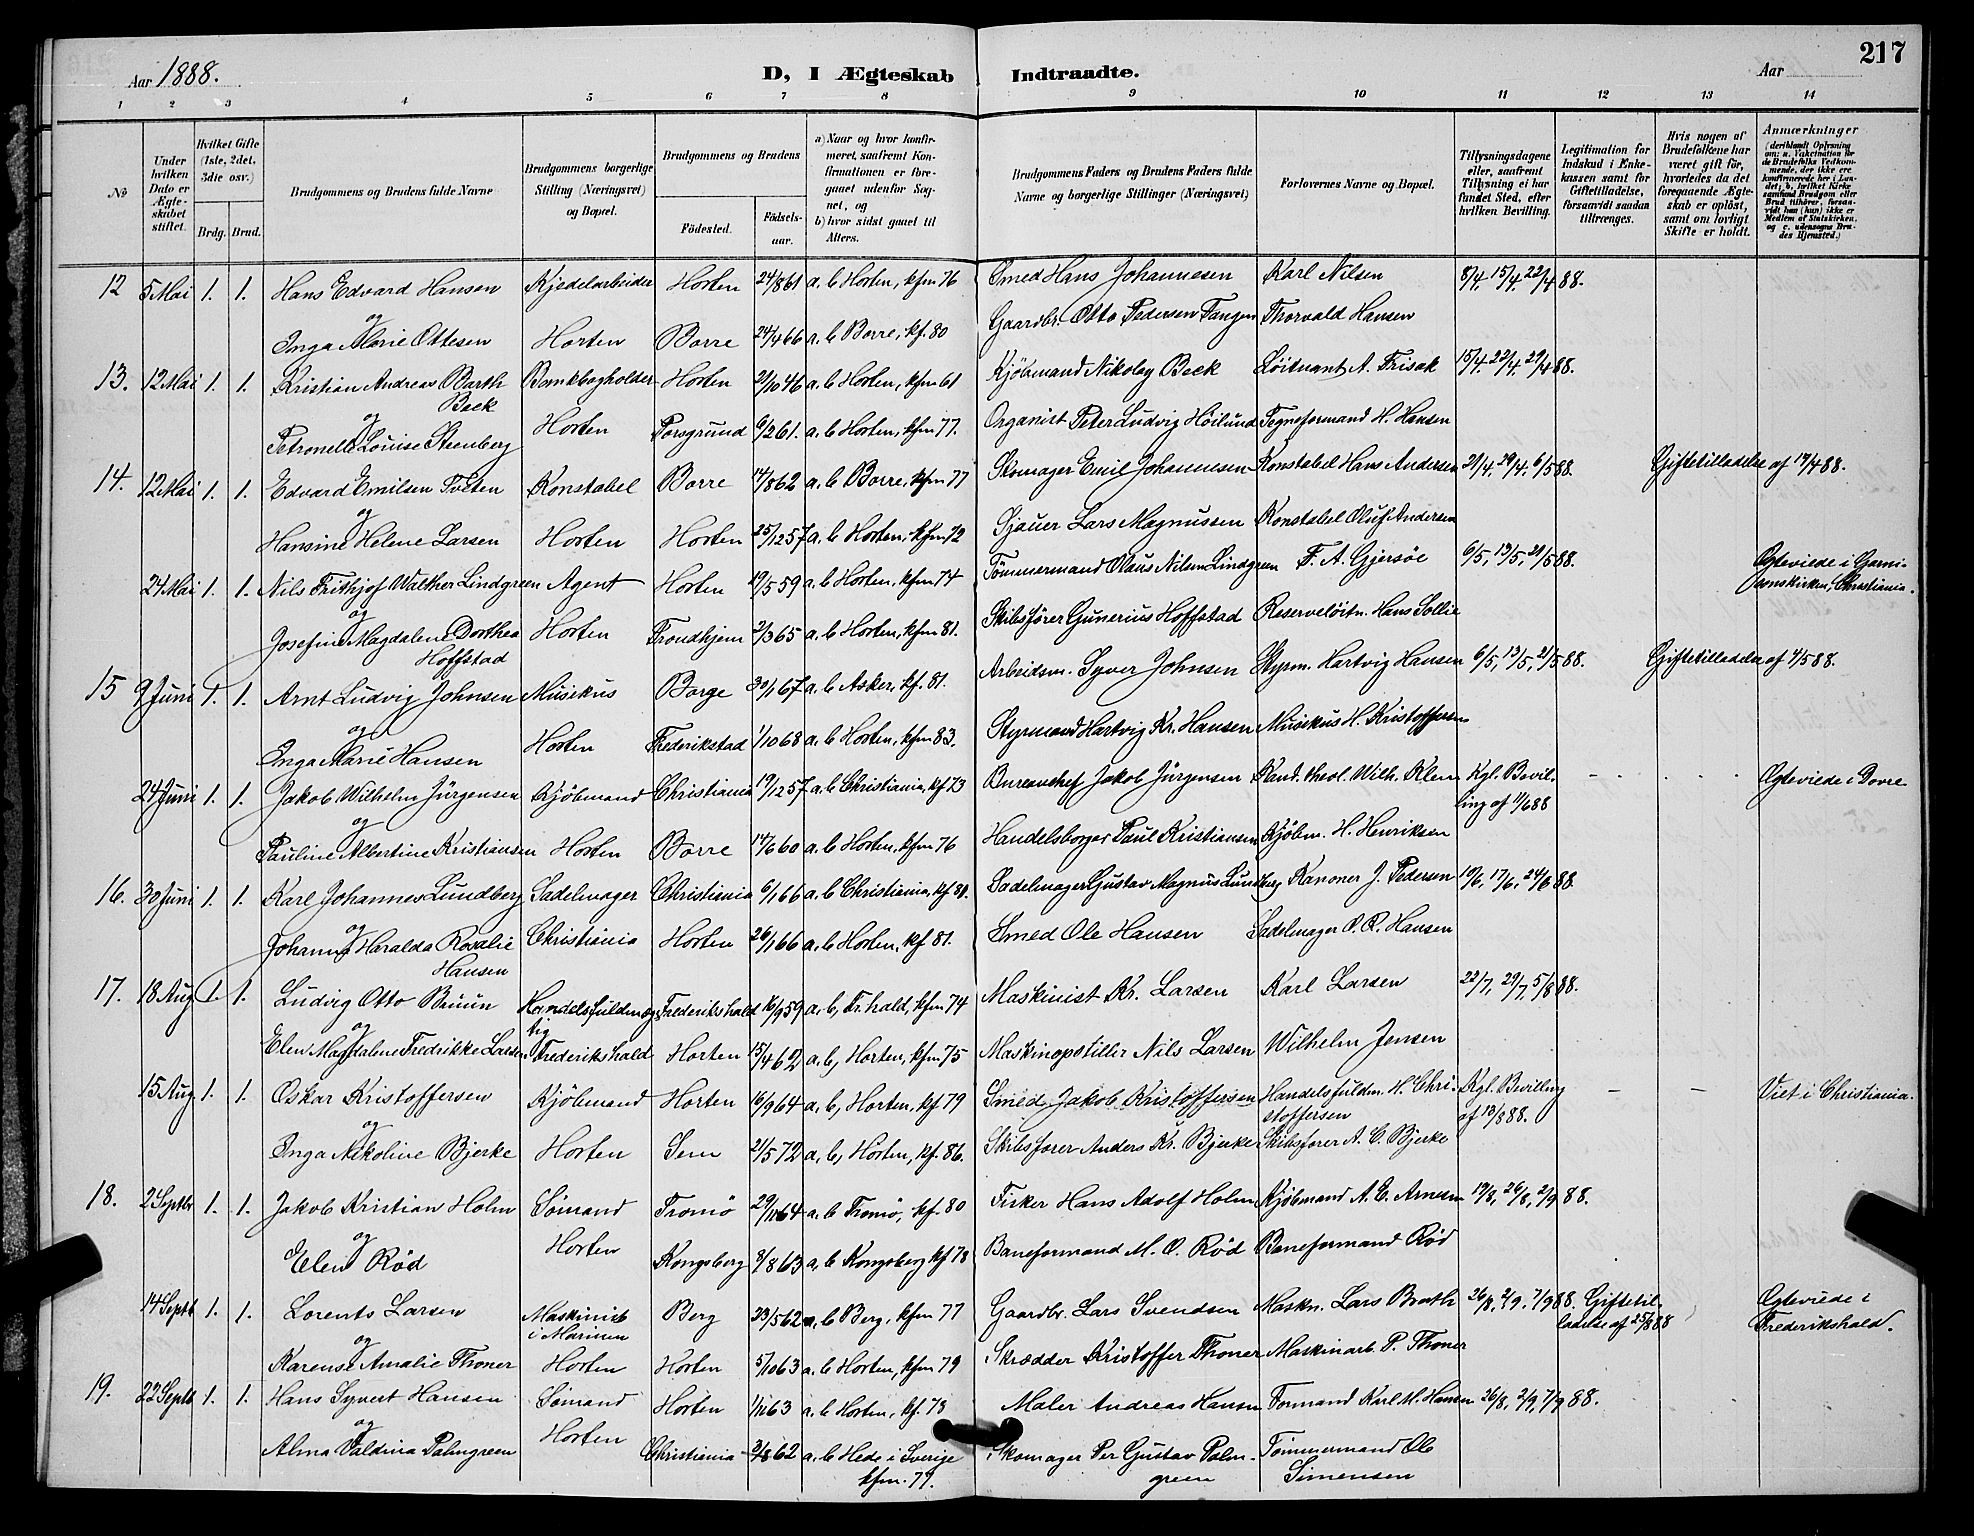 Aar 1888. D, I Ægteskab Indtraadte. Aar 217
1 2 3 4 5 6 7 8 9 10 11 12 13 14
№
Under hvilken Dato er Ægteskabet stiftet.
Hvilket Gifte (1ste, 2det, 3die osv.)
Brdg. Brud.
Brudgommens og Brudens fulde Navne
Brudgommens borgerlige Stilling (Næringsvei) og Bopæl.
Brudgommens og Brudens
Födested. Födselsaar.
a) Naar og hvor konfirmeret, saafremt Konfirmationen er foregaaet udenfor Sognet, og
b) hvor sidst gaaet til Alters.
Brudgommens Faders og Brudens Faders fulde Navne og borgerlige Stillinger (Næringsvei)
Forlovernes Navne og Bopæl.
Tillysningsdagene eller, saafremt Tillysning ei har fundet Sted, efter hvilken Bevilling.
Legitimation for Indskud i Ænkekassen samt for Giftetilladelse, forsaavidt saadan tiltrænges.
Hvis nogen af Brudefolkene har været gift för, hvorledes da det foregaaende Ægteskab er oplöst, samt om lovligt Skifte er holdt.
Anmærkninger (deriblandt Oplysning om: a. Vakcination for de Brudefolks Vedkommende, der ikke ere konfirmerede her i Landet; b. hvilket Kirkesamfund Brudgom eller Brud tilhörer, forsavidt han (hun) ikke er Medlem af Statskirken, og c. udensogns Brudes Hjemsted.)
12 5 Mai 1. 1. Hans Edvard Hansen Kjedelarbeider Horten 24/8 61 a. b Horten, kfm 76 Smed Hans Johannesen Karl Nilsen 8/4, 15/4, 22/4 88.
og
Inga Marie Ottesen Horten Borre 24/4 66 a. b Borre, kf. 80 Gaardbr. Otto Pedersen Tangen Thorvald Hansen
13. 12 Mai 1. 1. Kristian Andreas Barth Beck Bankbogholder Horten 21/10 46 a. b Horten, kfm 61 Kjöbmand Nikolay Beck Löitnant A. Frisak 15/4, 22/4, 29/4 88.
og
Petronelle Louise Steenberg Horten Porsgrund 6/2 61. a. b Horten, kfm 77. Organist Peter Ludvig Höilund Tegneformand H. Hansen
14. 12 Mai 1. 1. Edvard Emilsen Tveten Konstabel Borre 14/8 62 a. b Borre, kfm 77 Skomager Emil Johannesen Konstabel Hans Andersen 21/4, 29/4, 6/5 88. Giftetilladelse af 19/4 88.
og
Hansine Helene Larsen Horten Horten 25/12 57 a. b Horten, kfm 72 Sjauer Lars Magnussen Konstabel Oluf Andersen
24 Mai 1. 1. Nils Frithjof Walther Lindgreen Agent Horten 19/5 59 a. b Horten, kfm 74 Tömmermand Olaus Nilsen Lindgreen F. A. Gjersöe 6/5, 13/5, 21/5 88. Ægteviede i Garnisonskirken, Christiania.
og
Josefine Magdalene Dorthea Hoffstad Horten Trondhjem 2/3 65 a. b Horten, kfm 81. Skibsförer Gunerius Hoffstad Reservelöitn. Hans Sollie
15 9 Juni 1. 1. Arnt Ludvig Johnsen Musikus Borge 30/1 67 a. b Asker, kf. 81. Arbeidsm. Syver Johnsen Styrm. Hartvig Hansen 6/5, 13/5, 21/5 88. Giftetilladelse af 4/5 88.
og
Inga Marie Hansen Horten Frederikstad 1/10 68 a. b Horten, kfm 83. Styrmand Hartvig Kr. Hansen Musikus H. Kristoffersen
24 Juni 1. 1. Jakob Wilhelm Jürgensen Kjöbmand Christiania 19/12 57 a. b Christiania, kf 73 Bureauchef Jakob Jürgensen Kand. theol. Wilh. Klem Kgl. Bevilling af 11/6 88 Ægteviede i Dovre
og
Pauline Albertine Kristiansen Horten Borre 14/6 60 a. b Horten, kfm 76 Handelsborger Paul Kristiansen Kjöbm. H. Henriksen
16. 30 Juni 1. 1. Karl Johannes Lundberg Sadelmager Christiania 6/1 66 a. b Christiania, kf 80. Sadelmager Gustav Magnus Lundberg Kanoner J. Pedersen 10/6, 17/6, 24/6 88.
og
Johanne Haralda Rosalie Hansen Christiania Horten 26/1 66 a. b Horten, kf 81. Smed Ole Hansen Sadelmager O. R. Hansen
17. 18 Aug 1. 1. Ludvig Otto Bruun Handelsfuldmægtig Frederikshald 16/9 59 a. b, Fr.hald, kfm 74 Maskinist Kr. Larsen Karl Larsen 22/7, 29/7, 5/8 88.
og
Elen Magdalene Fredrikke Larsen Frederikshald Horten 15/4 62 a. b, Horten, kfm 75 Maskinopstiller Nils Larsen Wilhelm Jensen
15 Aug 1. 1. Oskar Kristoffersen Kjöbmand Horten 16/9 64 a. b, Horten, kf 79 Smed Jakob Kristoffersen Handelsfuldm. H. Christoffersen Kgl. Bevilling af 13/8 88. Viet i Christiania.
og
Inga Nikoline Bjerke Horten Sem 21/5 72 a. b, Horten, kf. 86. Skibsförer Anders Kr. Bjerke Skibsförer A. C. Bjerke
18. 2 Septbr 1. 1. Jakob Kristian Holm Sömand Tromö 29/11 64 a. b Tromö, kf. 80 Fisker Hans Adolf Holm Kjöbmand A. E. Arnesen 19/8, 26/8, 2/9 88.
og
Elen Röd Horten Kongsberg 8/8 63 a. b Kongsberg kf 78 Baneformand M. O. Röd Baneformand Röd
14 Septb 1. 1. Lorents Larsen Maskinist i Marinen Berg 23/5 62 a. b Berg, kfm 77 Gaardbr. Lars Svendsen Maskn. Lars Brath 26/8, 2/9. 7/9 88. Giftetilladelse af 25/8 88 Ægteviede i Frederikshald.
og
Karense Amalie Thoner Horten Horten 5/10 63 a. b Horten, kfm 79 Skrædder Kristoffer Thoner Maskinarb. P. Thoner
19. 22 Septb 1. 1. Hans Syvert Hansen Sömand Horten 1/11 63 a. b Horten, kf. 78 Maler Andreas Hansen Formand Karl M. Hansen 26/8, 2/9, 7/9 88.
og
Alma Valdina Palmgreen Horten Christiania 2/8 62 a. b Hede i Sverige kfm. 77. Skomager Per Gustav Palmgreen Tömmermand Ole Simensen